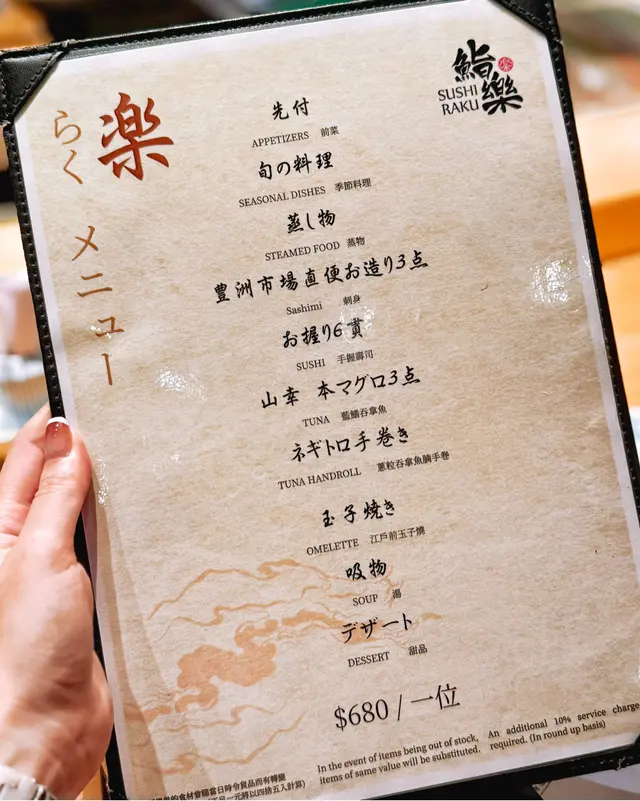 鮨樂
SUSHI
RAKU
楽
らく
メニュー
先付
APPETIZERS 前菜
旬の料理
SEASONAL DISHES 季節料理
蒸し物
STEAMED FOOD 蒸物
豊洲市場直便お造り3点
Sashimi 刺身
お握り6貫
SUSHI 手握壽司
山幸 本マグロ3点
TUNA 藍鰭吞拿魚
ネギトロ手巻き
TUNA HANDROLL 蔥粒吞拿魚腩手巻
玉子焼き
OMELETTE 江戶前玉子燒
吸物
SOUP 湯
デザート
DESSERT 甜品
$680 / 一位
In the event of items being out of stock,
items of same value will be substituted.
An additional 10% service charge
required. (In round up basis)
的食材會隨當日時令貨品而有轉變
一元將以四捨五入計算)